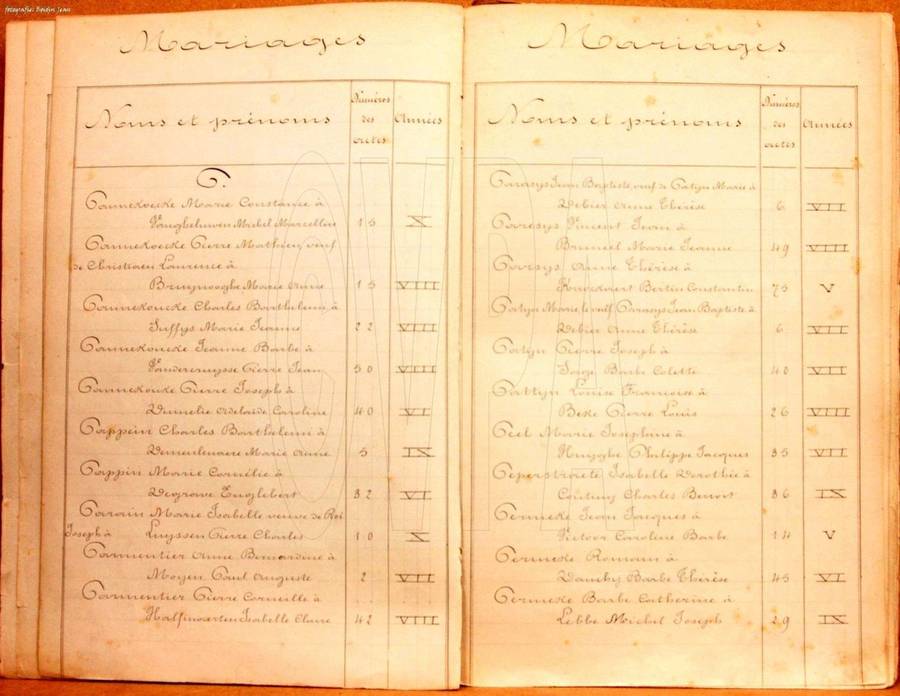 fotografie: Boidin Jean
Mariages
Noms et prénoms
Numéros
des
actes
Années
P.
Pannekoecke Marie Constance à
Vanghelüwen Michel Marcellin 15 X
Pannekoecke Pierre Mathieu veuf
de Christiaen Laurence à
Bruynooghe Marie Anne 15 VIII
Pannekoucke Charles Barthelemi à
Suffys Marie Jeanne 22 VIII
Pannekoucke Jeanne Barbe à
Vandercruysse Pierre Jean 50 VIII
Pannekoucke Pierre Joseph à
Dumelie Adelaïde Caroline 40 VI
Pappein Charles Barthelemi à
Demeulenaere Marie Anne 5 IX
Pappin Marie Cornélie à
Degrave Englebert 32 VI
Parain Marie Isabelle veuve de Roi
Joseph à Luyssen Pierre Charles 10 X
Parmentier Anne Bernardine à
Moyen Paul Auguste 2 VII
Parmentier Pierre Corneille à
Halfmaerten Isabelle Claire 42 VIII
Mariages
Noms et prénoms
Numéros
des
actes
Années
Parasys Jean Baptiste, veuf de Patyn Marie à
Debier Anne Thérèse 6 VII
Paresys Vincent Jean à
Bruneel Marie Jeanne 49 VIII
Paresys Anne Thérèse à
Bertin Constantin 75 V
Patyn Marie, le veuf, Parasys Jean Baptiste à
Debier Anne Thérèse 6 VII
Patyn Pierre Joseph à
Barbe Colette 40 VII
Pattyn Louise Françoise à
Beke Pierre Louis 26 VIII
Peel Marie Josephine à
Huyghe Philippe Jacques 35 VII
Peperstraete Isabelle Dorothée à
Charles Benoit 36 IX
Permeke Jean Jacques à
Pietoor Caroline Barbe 14 V
Permeke Romain à
Barbe Thérèse 45 VI
Permeke Barbe Catherine à
Lebbe Michel Joseph 29 IX